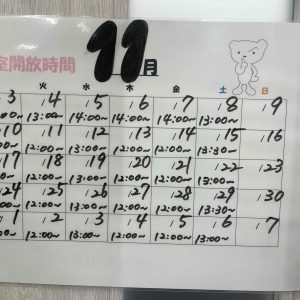 11月
室開放時間
火 水 木 金 土 日
3 4 5 6 7 8 9
:00~ 13:00~ 14:00~ 14:00~ 14:00~ 13:00~
10 11 12 13 14 15 16
:00~ 12:00~ 13:00~ 12:00~ 12:00~ 13:30~
17 18 19 20 21 22 23
:00~ 12:00~ 13:00~ 12:00~ 12:00~ 13:00~
24 25 26 27 28 29 30
:00~ 12:00~ 13:00~ 12:00~ 12:00~ 13:30~
1 2 3 4 5 6 7
:00~ 12:00~ 13:00~ 12:00~ 12:00~ 13:00~